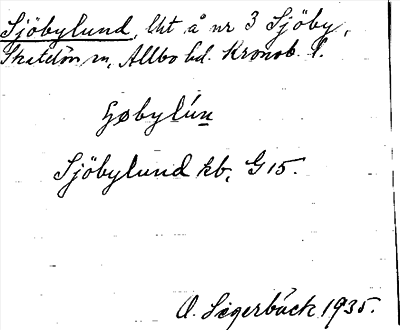 Sjöbylund, lht å nr 3 Sjöby,
Skatelöv sn, Allbo hd. Kronob. l.
Sjöbylund kb, G 15.
O. Segerbäck 1935.